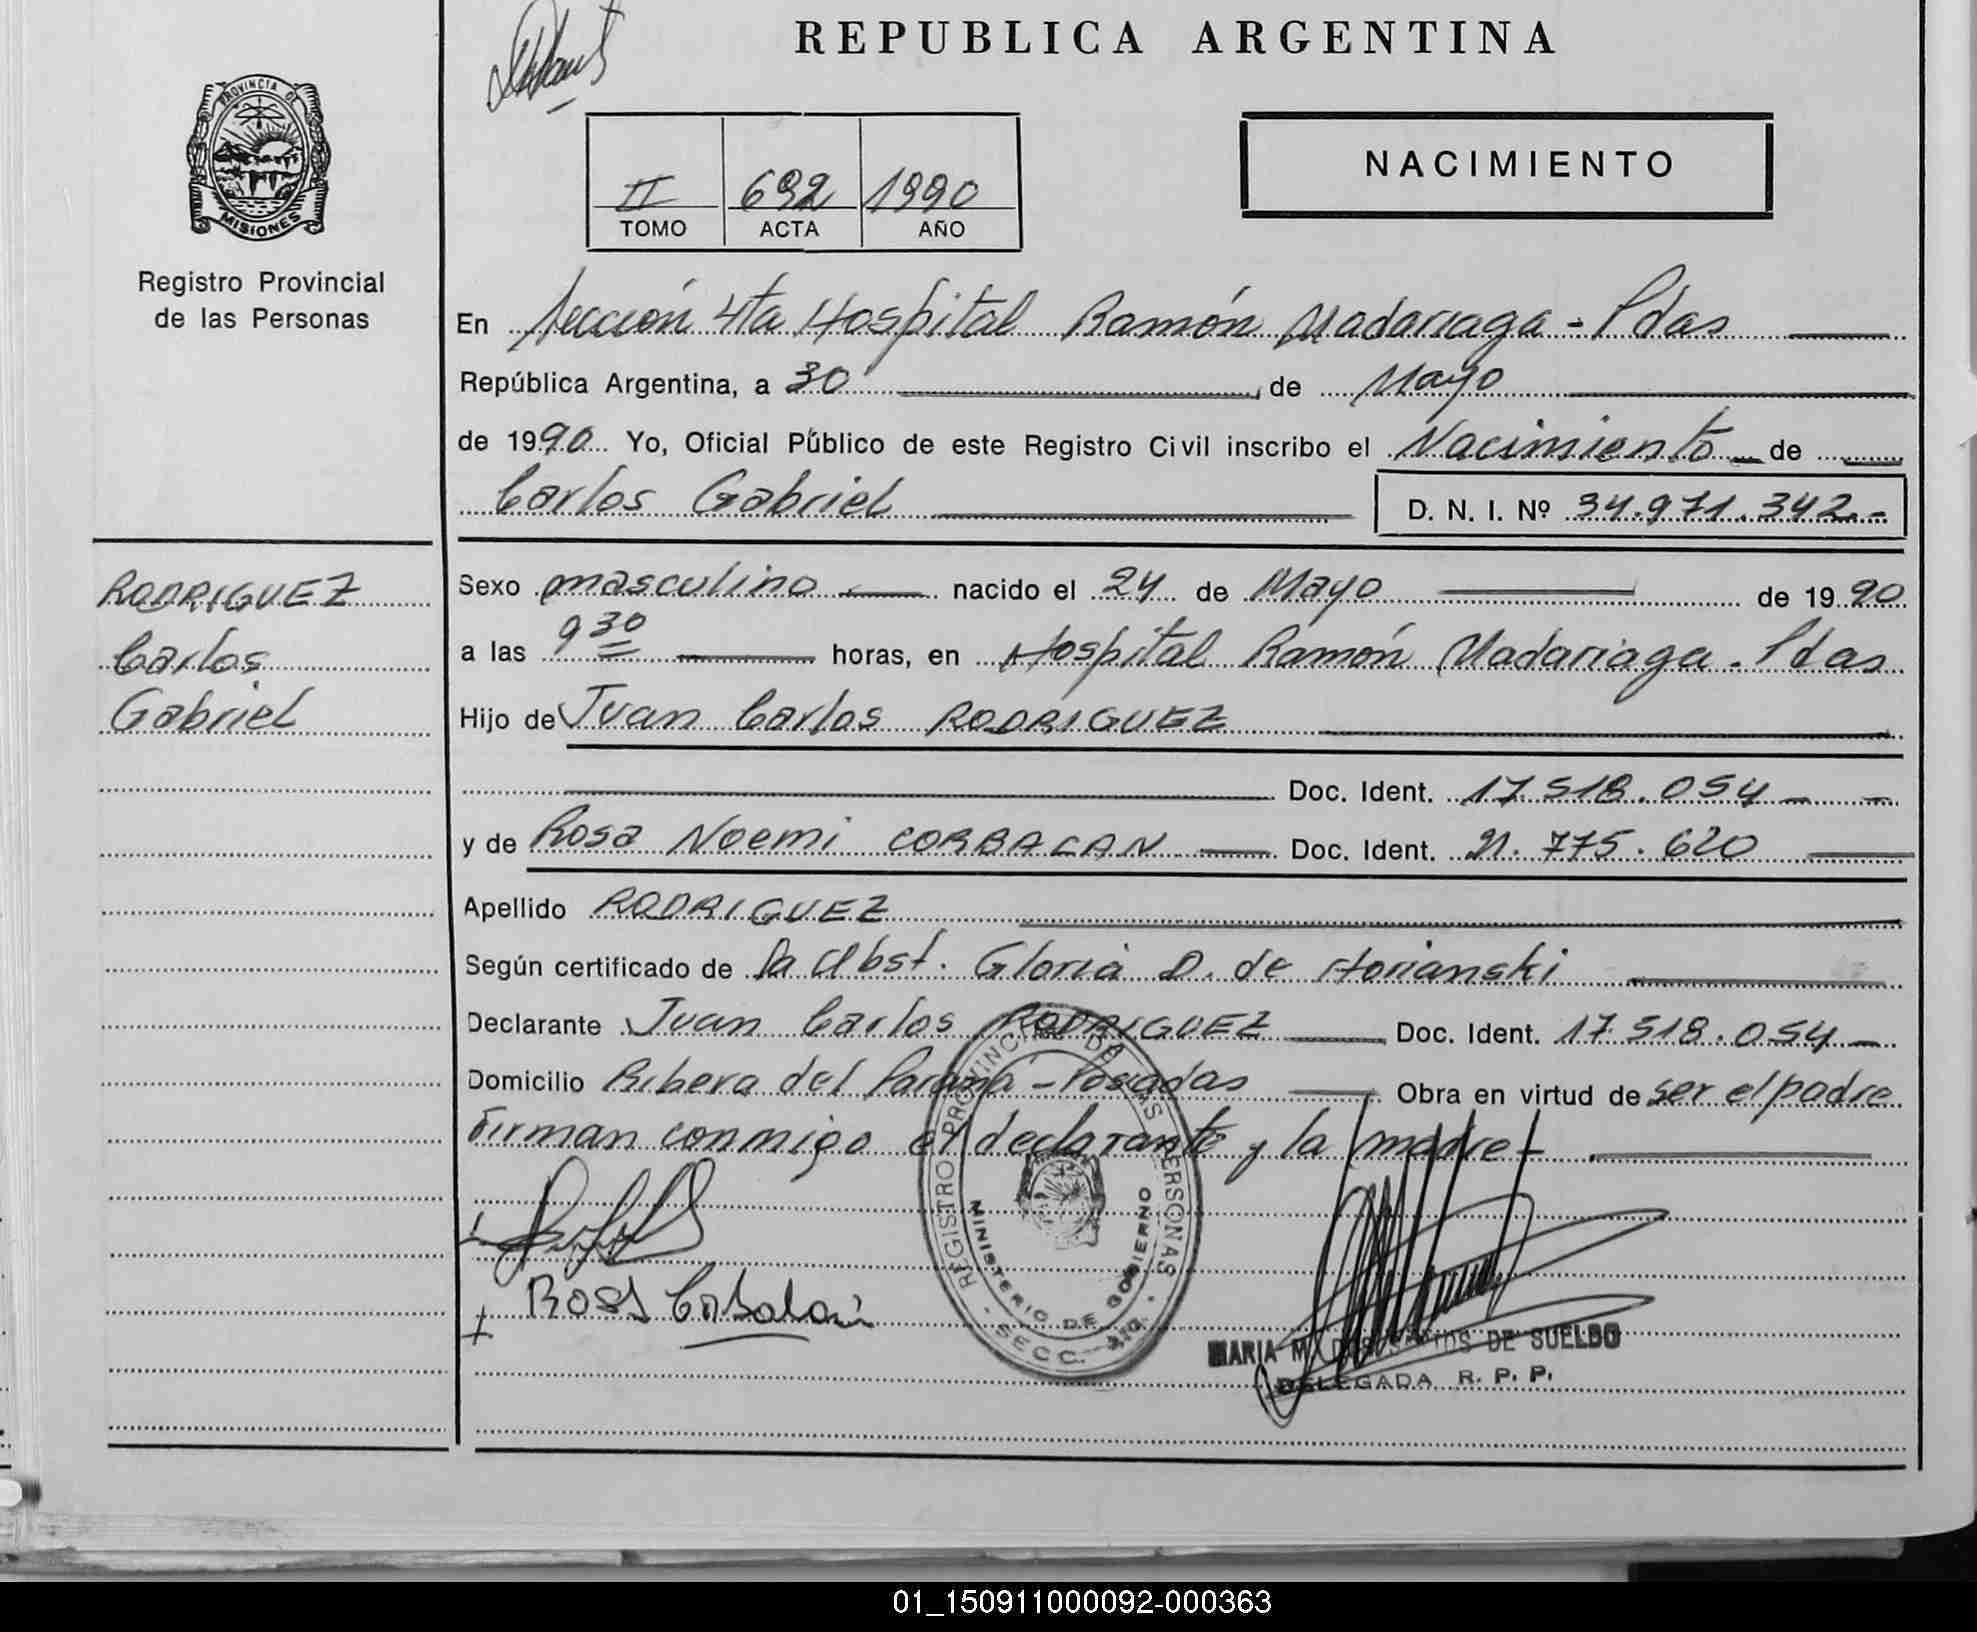 REPUBLICA ARGENTINA
PROVINCIA DE
MISIONES
Registro Provincial
de las Personas
NACIMIENTO
II 692 1990
TOMO ACTA AÑO
En Sección 4ta Hospital Ramón Madariaga - Pdas
República Argentina, a 30 de Mayo
de 1990 Yo, Oficial Público de este Registro Civil inscribo el Nacimiento de
Carlos Gabriel D. N. I. Nº 34.971.342.-
RODRIGUEZ
Carlos
Gabriel
Sexo masculino nacido el 24 de Mayo de 1990
a las 9 30 horas, en Hospital Ramón Madariaga. Pdas
Hijo de Juan Carlos RODRIGUEZ
Doc. Ident. 17.518.054
y de Rosa Noemi CORBALAN Doc. Ident. 21.775.620
Apellido RODRIGUEZ
Según certificado de la Obst. Gloria D. de
Declarante Juan Carlos RODRIGUEZ Doc. Ident. 17.518.054
Domicilio Ribera del Paraná - Posadas Obra en virtud de ser el padre
Firman conmigo el declarante y la madre
REGISTRO PROVINCIAL DE LAS PERSONAS
MINISTERIO DE GOBIERNO
SECC.
MARIA M. DE SUELDO
DELEGADA R. P. P.
01_150911000092-000363